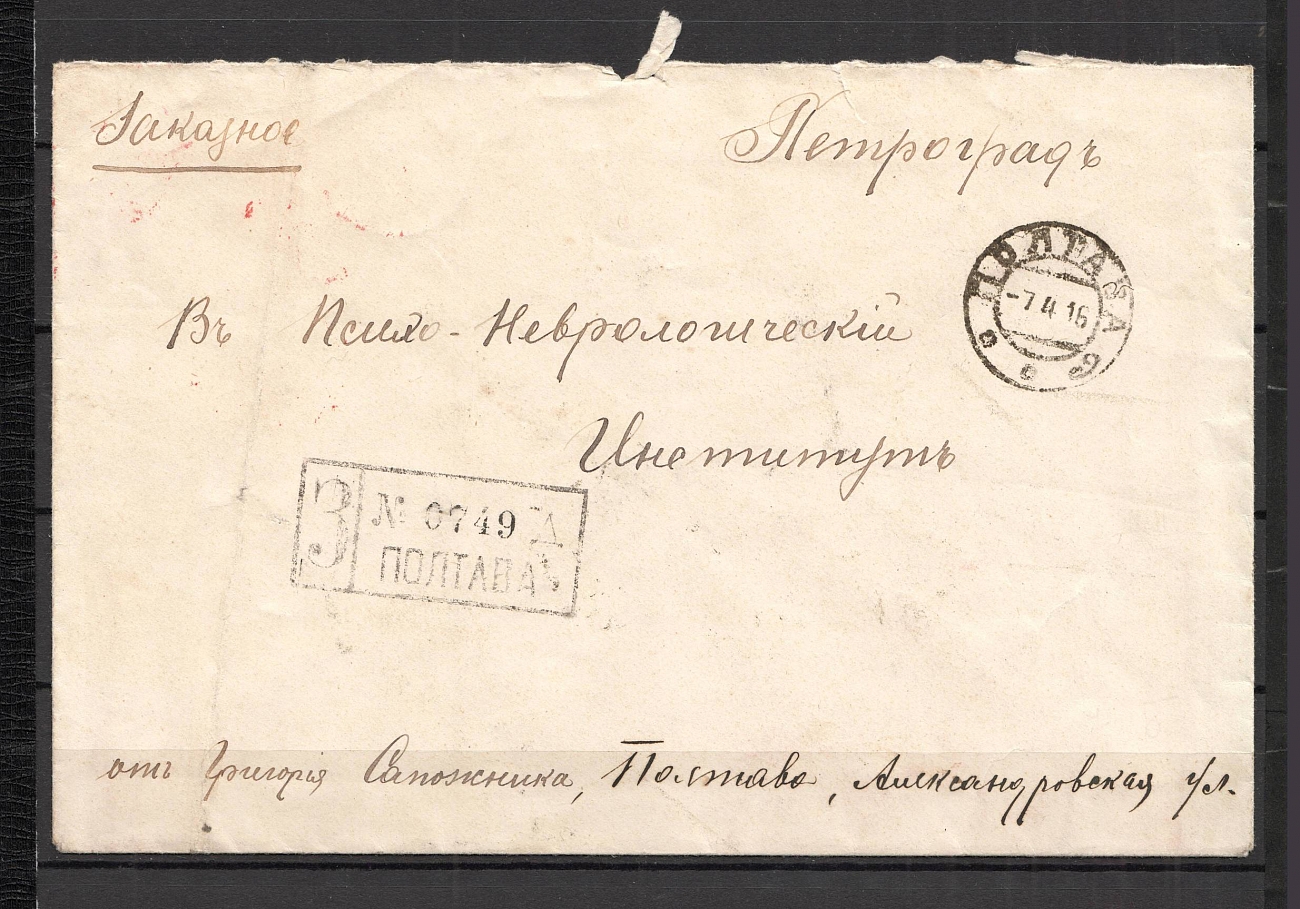 Заказное
Петроградъ
ПОЛТАВА
-7.4.16
Въ Психо-Неврологическій
Институтъ
З № 0749 Д
ПОЛТАВА
отъ Григорія Сапожника, Полтава, Александровская ул.